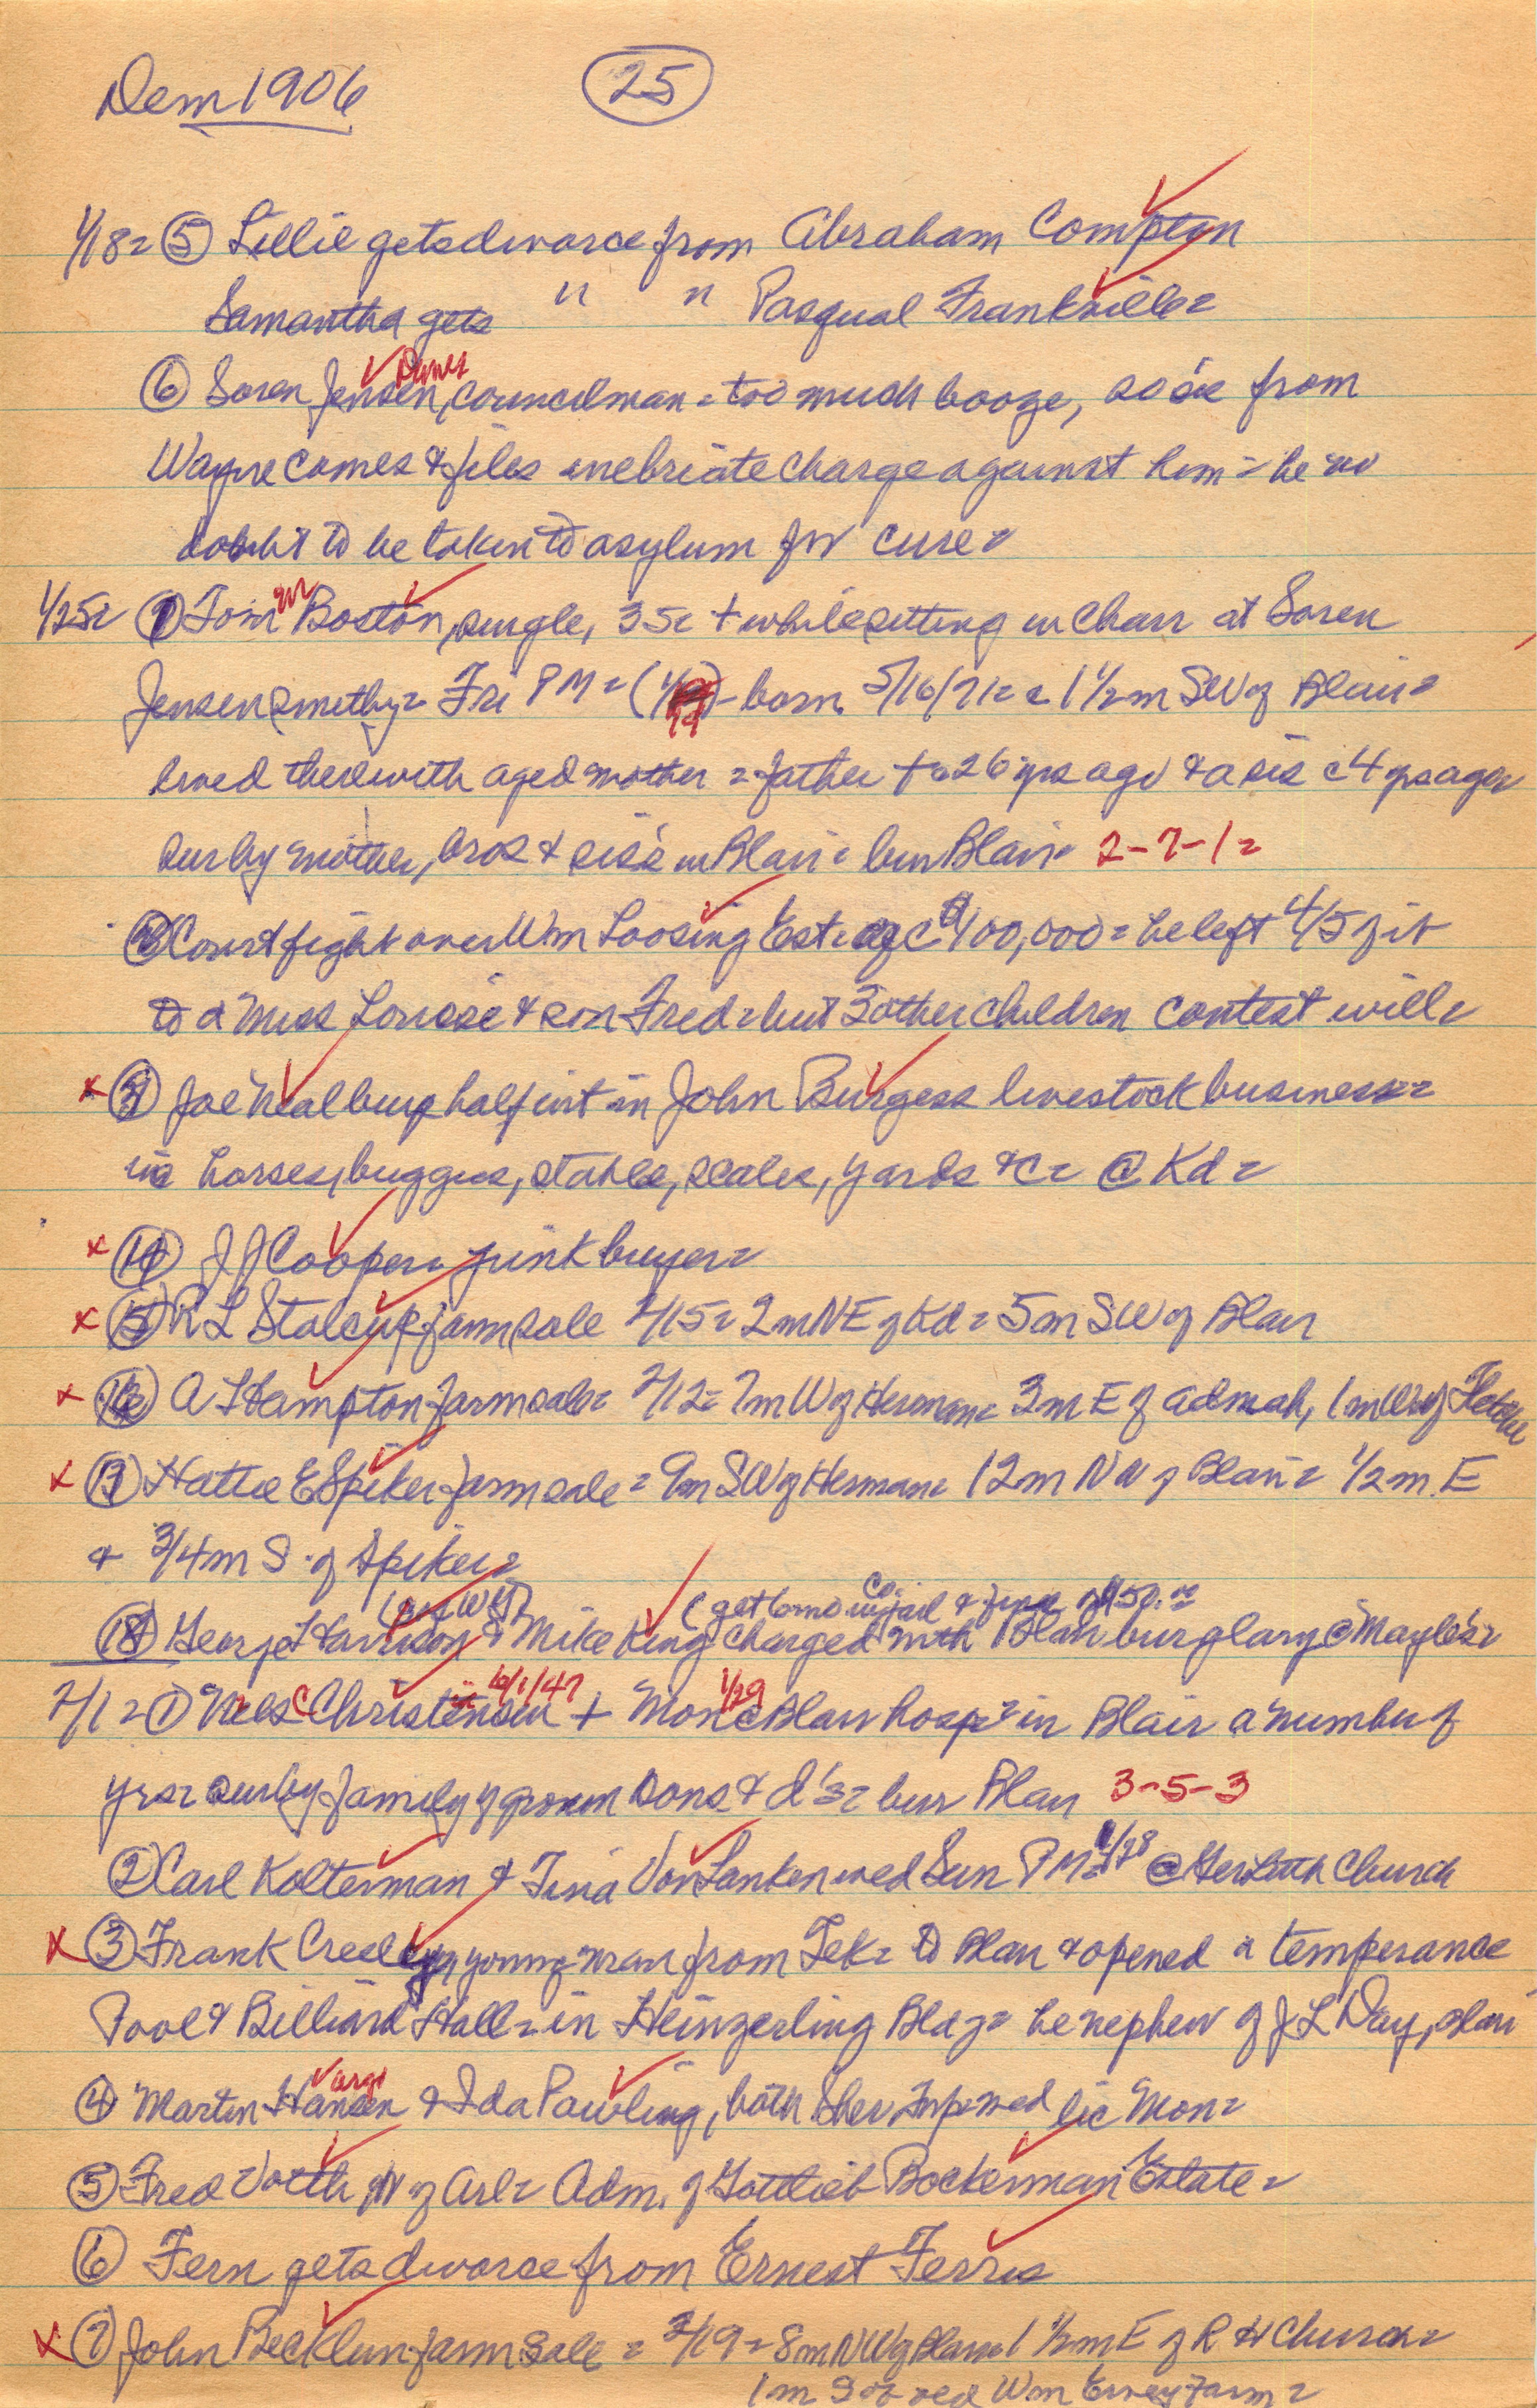 Dem 1906 25
1/18= ⑤ Lillie gets divorce from Abraham Compton
Samantha gets " " Pasqual Frankville=
⑥ Soren Jensen, Danes councilman = too much booze, so sis from
Wayne comes & files inebriate charge against him = he no
doubt to be taken to asylum for cure=
1/25= ① Tom Boston, single, 35= + while sitting in chair at Soren
Jensen smithy= Fri PM = (1/19) - born 5/16/71= c 1 1/2 m SW of Blair=
lived there with aged mother = father + c 26 yrs ago & a sis c 4 yrs ago=
sur by mother, bros & sis's in Blair= bur Blair= 2-7-1=
Court fight over Wm Loosing Est. of c $100,000= he left 4/5 of it
to a Miss Louise & son Fred= but 3 other children contest will=
x Joe Neal buys half int in John Burgess livestock business=
inc horses, buggies, stable, scales, yards &c= @ Kd=
x J J Cooper= junk buyer=
x R L Stalcup farm sale 2/15= 2m NE of Kd= 5m SW of Blair
x A Hampton farm sale= 2/12= 7m W of Herman= 3m E of Admah, 1m W of Fletcher
x Hattie E Spiker farm sale= 9m SW of Herman= 12m NW of Blair= 1/2 m. E
& 3/4 m S. of Spiker=
(get 6 mo in Co. jail & fine of $50.=
George Harrison & Mike King charged with Blair burglary @ Mayle's=
2/1= ① Niels C Christensen 10/1/47 + Mon 1/29 @ Blair hosp= in Blair a number of
yrs= sur by family of grown sons & d's= bur Blair 3-5-3
② Carl Kolterman & Tina Von Lanken wed Sun PM= 1/28 @ Ger Luth Church
x ③ Frank Creelly, young man from Tek= to Blair & opened a temperance
Pool & Billiard Hall= in Heinzerling Bldg= he nephew of J L Day, Blair
④ Martin Hansen & Ida Pawling, both Sher Twp wed lic Mon=
⑤ Fred Voth of Arl= Adm. of Gottlieb Bockerman Estate=
⑥ Fern gets divorce from Ernest Ferris
x ⑦ John Becklun farm sale = 2/19= 8m NW of Blair= 1 1/2 m E of R H Church=
1m S of old Wm Farm=